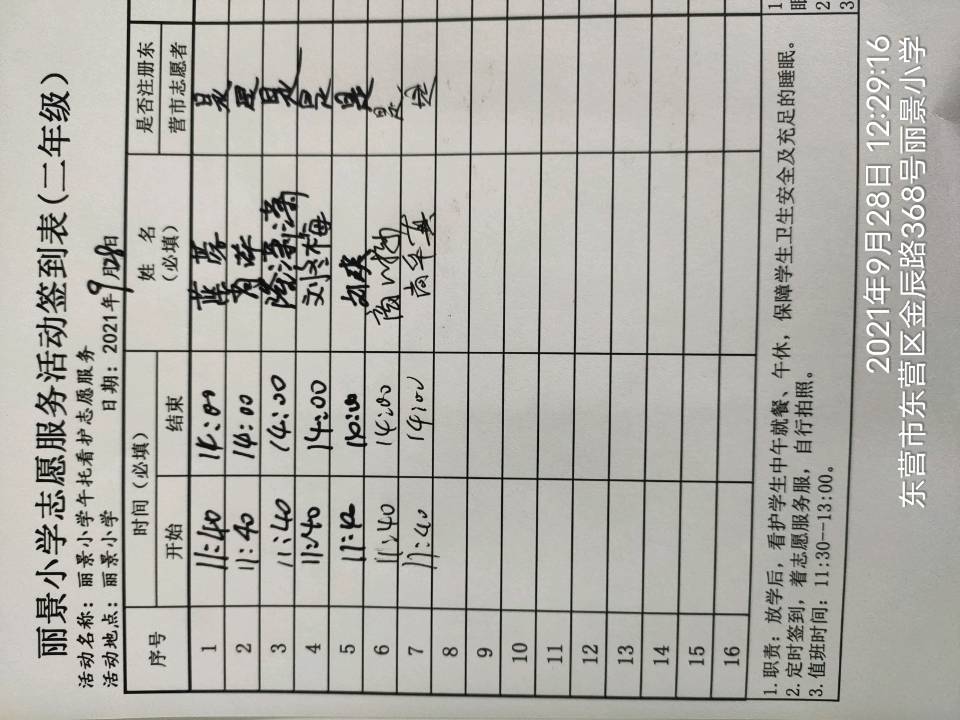 丽景小学志愿服务活动签到表(二年级)
活动名称：丽景小学午托看护志愿服务
活动地点：丽景小学 日期：2021年9月28日
序号 时间(必填) 姓名(必填) 是否注册东营市志愿者
开始 结束
1 11:40 14:00 是
2 11:40 14:00 是
3 11:40 14:00 是
4 11:40 14:00 刘冬梅 是
5 是
6 11:40 14:00 是
7 11:40 14:00 是
8
9
10
11
12
13
14
15
16
1.职责：放学后，看护学生中午就餐、午休，保障学生卫生安全及充足的睡眠。
2.定时签到，着志愿服务服，自行拍照。
3.值班时间：11:30--13:00。
1
2
3
2021年9月28日 12:29:16
东营市东营区金辰路368号丽景小学